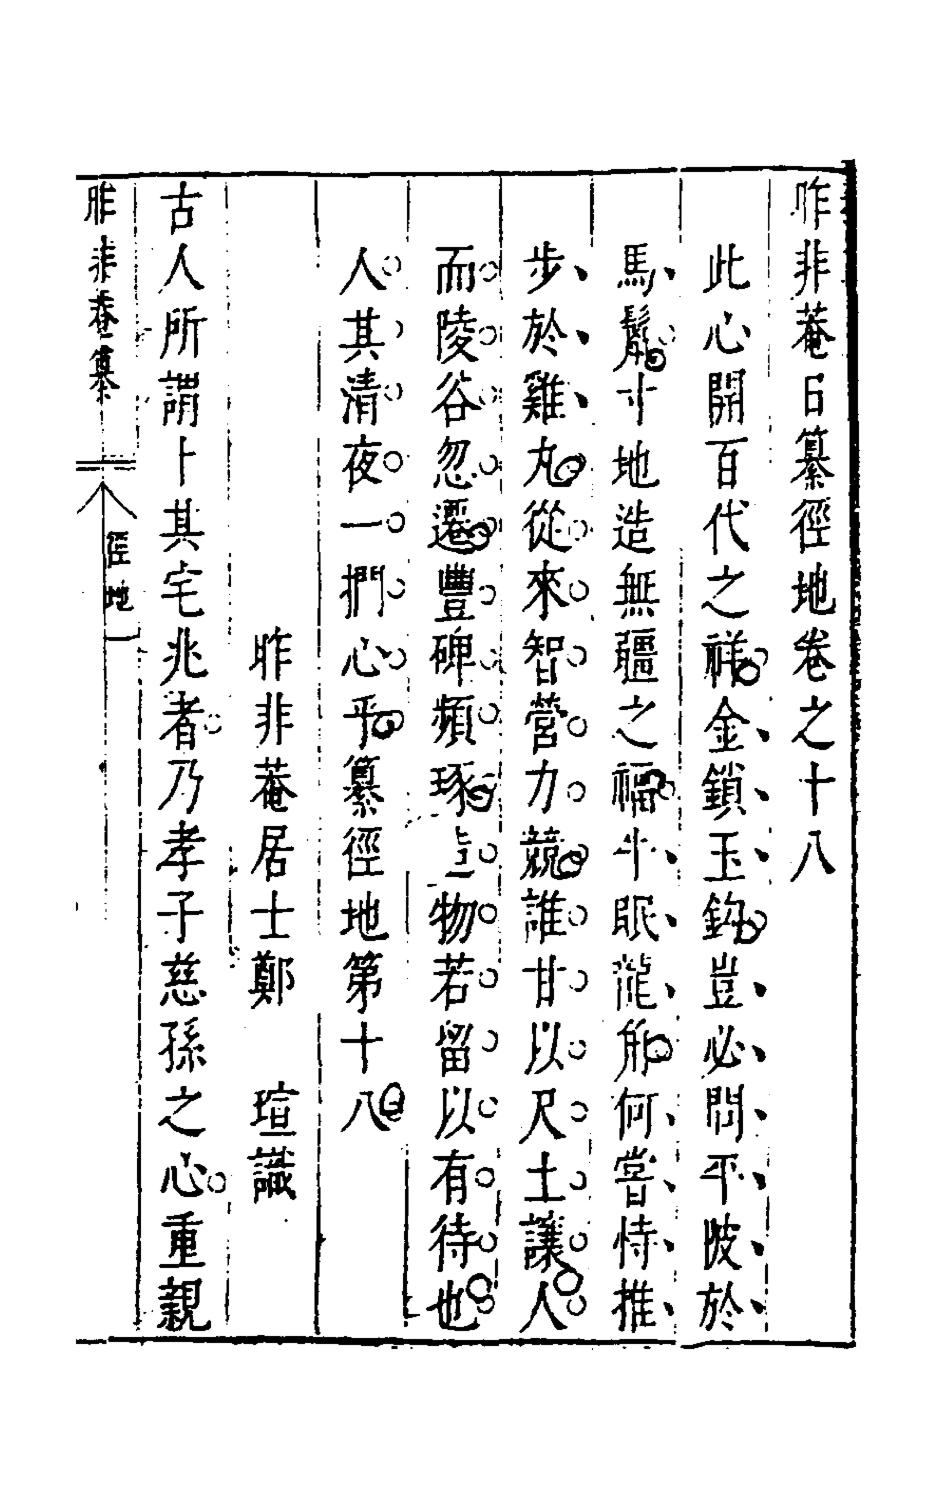 昨非菴日纂徑地卷之十八
此心開百代之祥金鎖玉鈎豈必問平陂於
馬鬛寸地造無疆之福牛眠龍何嘗恃推
步於雞丸從來智營力競誰甘以尺土讓人
而陵谷忽遷豐碑頻琢物若留以有待也
人其清夜一捫心乎纂徑地第十八
昨非菴居士鄭　瑄識
古人所謂卜其宅兆者乃孝子慈孫之心重親
昨非菴纂　徑地　一